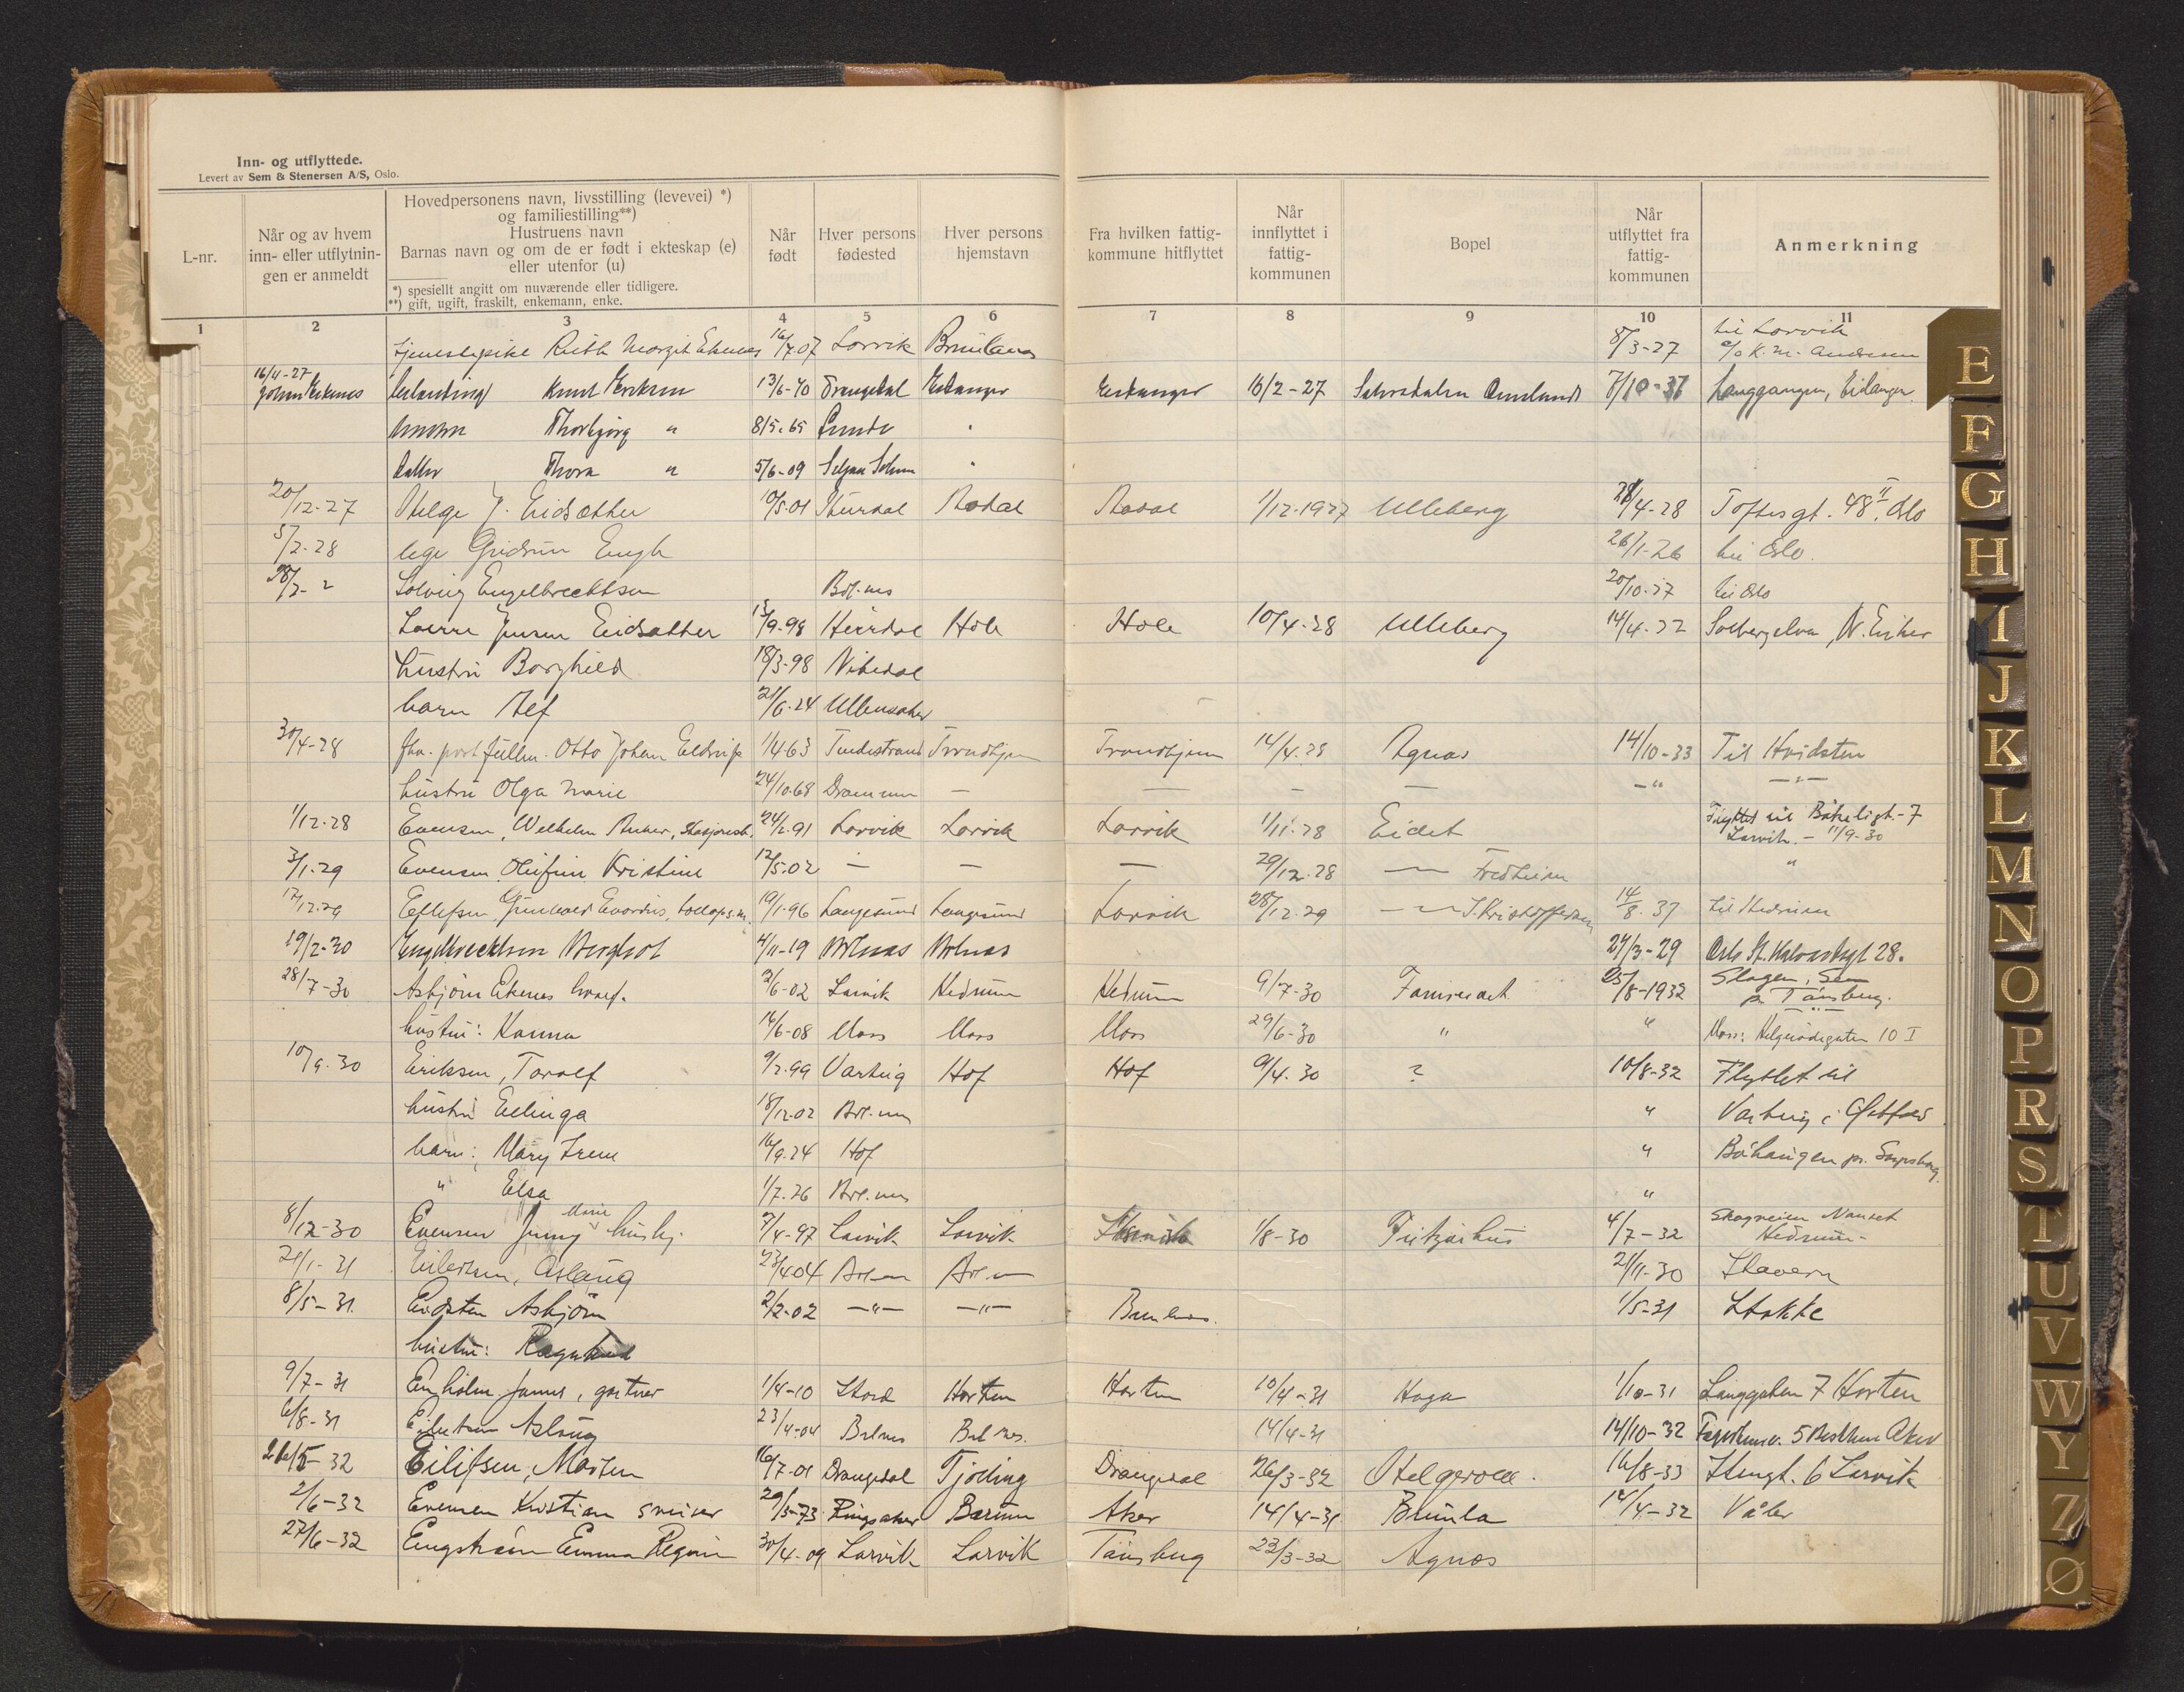 Inn- og utflyttede.
Levert av Sem & Stenersen A/S, Oslo.
L-nr.
Når og av hvem
inn- eller utflytnin-
gen er anmeldt
Hovedpersonens navn, livsstilling (levevei) *)
og familiestilling**)
Hustruens navn
Barnas navn og om de er født i ekteskap (e)
eller utenfor (u)
*) spesiellt angitt om nuværende eller tidligere.
**) gift, ugift, fraskilt, enkemann, enke.
Når
født
Hver persons
fødested
Hver persons
hjemstavn
Fra hvilken fattig-
kommune hitflyttet
Når
innflyttet i
fattig-
kommunen
Bopel
Når
utflyttet fra
fattig-
kommunen
Anmerkning
1 2 3 4 5 6 7 8 9 10 11
tjenestepike Ruth Margit Ekenes 16/7.07 Larvik Brunlanes 8/3-27 til Larvik
c/o K. M. Andersen
16/4-27
Johan Ekenes Knut Eriksen 13/6-70 Drangedal Eidanger Eidanger 16/2-27 7/10-37 Langgangen, Eidanger
Thorbjørg " 8/5.65 Lunde "
datter Thora " 5/6-09 "
20/12-27 Helge J. Eidsæther 10/5.01 Hurdal Aadal Aadal 1/12-1927 Ulleberg 28/4-28 Toftesgt. 48 II Oslo
5/2-28 lege Gudrun Engh 26/1-26 til Oslo.
Solveig Engelbrechtsen Brl.nes 20/10-27 til Oslo
Sverre Jensen Eidsæther 15/9-98 Hurdal Hole Hole 10/4-28 Ulleberg 14/4-32 Solbergelva, N. Eiker
hustru Borghild 18/3-98 Nitedal
barn Alf 21/6-24 Ullensaker
30/4-28 fhv. postfullm. Otto Johan Eldrup 1/4-63 Tvedestrand Trondhjem Trondhjem 14/4.28 Agnes 14/10-33 Til Hvidsten
hustru Olga Marie 24/10.68 Drammen — — — — —"— —"—
1/12-28 Evensen, Wilhelm Anker, 24/2.91 Larvik Larvik Larvik 1/11-28 Eidet Flyttet til Bøkeligt.-7
Larvik. - 11/9-30
3/1-29 Evensen Olufine Kristine 12/5-02 — — — 29/12.28 — Fredheim "
17/12-29 Ellefsen, 19/1-96 Langesund Langesund Larvik 28/12-29 — J. Kristoffersen 14/8-37 til Hedrum
19/2-30 Engelbrechtsen 4/11-19 Brlnes Brlnes 24/3-29 Oslo St. Halvardsgt 28.
28/7-30 Asbjørn Ekenes 2/6-02 Larvik Hedrum Hedrum 9/7-30 25/8-1932 Slagen, Sem
p. Tønsberg.
hustru: Hanna 14/6-08 Moss Moss Moss 29/6-30 " " Moss: Helgerødgaten 10 I
10/9-30 Eriksen, Toralf 9/2.99 Varteig Hof Hof 9/4.30 ? 10/8-32 Flyttet til
hustru Ellinga 18/12-02 Brl.nes " Varteig i Østfold
barn: Mary Irene 16/9.24 Hof " Bøhaugen pr. Sarpsborg
" Elsa 1/7-26 Brl.nes "
8/12-30 Evensen Jenny Marie husbj. 7/4-97 Larvik Larvik 1/8-30 Fritzøehus 4/7-32 Skogveien Nanset
Hedrum-
21/1-31 Eilertsen, Aslaug 23/4.04 Brl.nes Brl.nes 21/11-30 Stavern
8/5-31. Eidsten Asbjørn 2/2-02 —"— —"— Brunlanes. 1/5-31 Stokke
hustru: Ragnhild
9/7-31 Engholm James, gartner 1/4-10 Stord Horten Horten 10/4-31 Haga 1/10-31 Langgaten 7 Horten
6/8-31 Eilertsen Aslaug 23/4-04 Brlnes Brl.nes. 14/4-31 14/10-32 5 Bestum Aker
26/5-32 Eilifsen, Morten 16/7-01 Drangedal Tjølling Drangedal 26/3-32 Helgeroa. 16/8-33 Stengt. 6 Larvik
2/6-32 Evensen Kristian sveiser 29/5-73 Ringsaker Bærum Aker 14/4-31 Brunla 14/4-32 Våler
27/6-32 Engstrøm Emma Regine 30/4-09 Larvik Larvik Tønsberg 23/3-32 Agnes
E
F
G
H
I
J
K
L
M
N
O
P
R
S
T
U
V
W
Y
Z
Ø